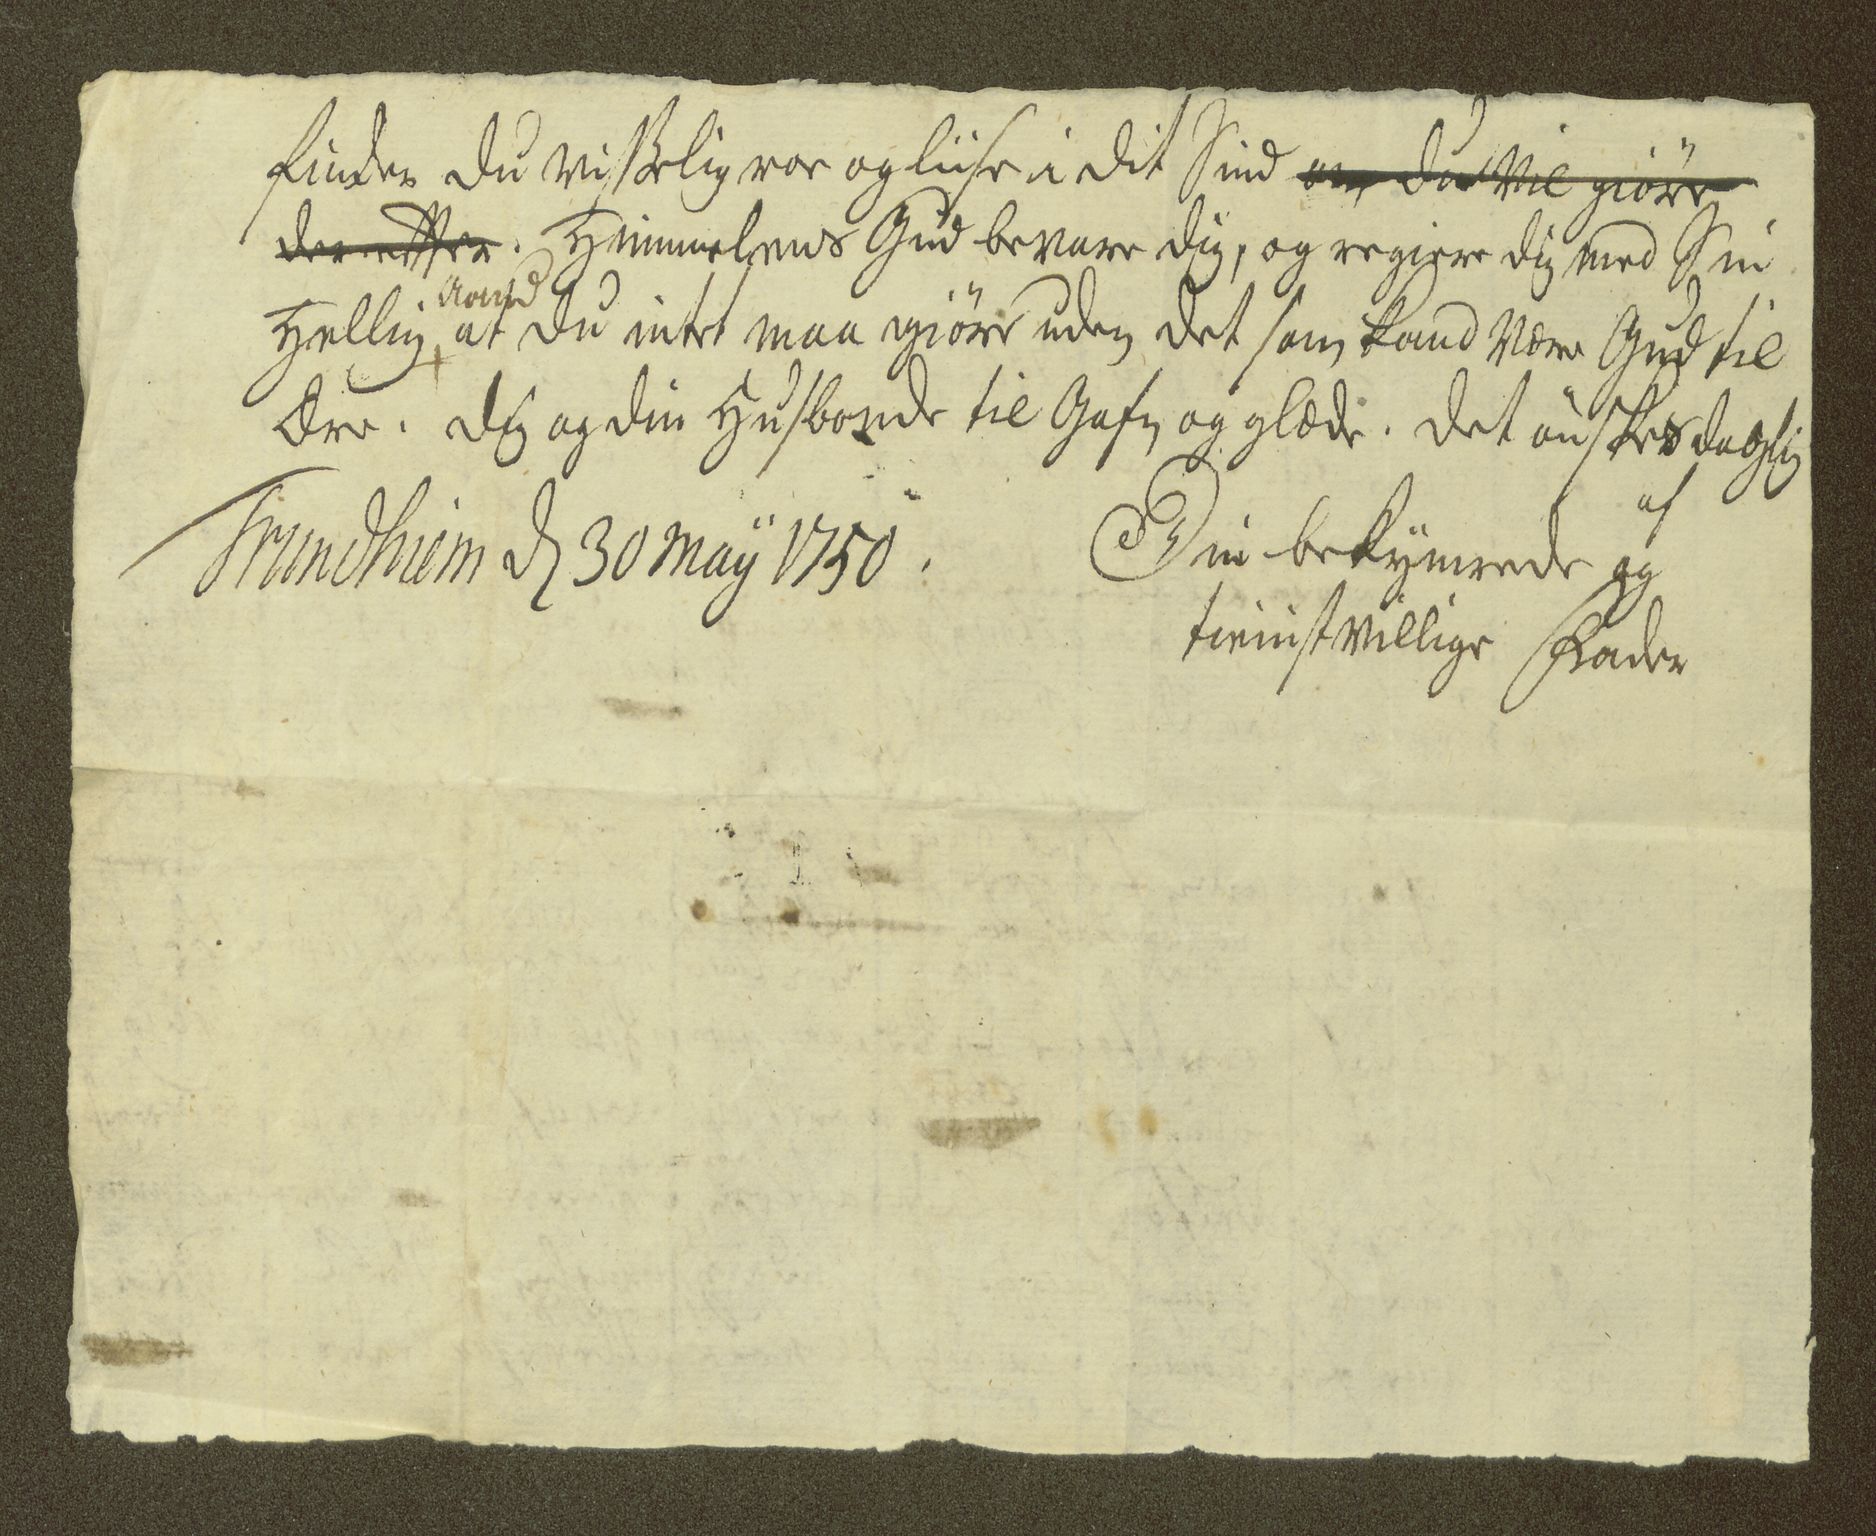 finder du visselig roe og liise i dit Sind om du vil giöre
der effter. Himmelens Gud bevare dig, og regiere dig med Sin
Hellig Aand at du intet maa giöre uden det som kand være Gud til
Ære. dig og din Husbonde til Gafn og glæde. det önskes daglig
af
Trundhiem d 30 Maÿ 1750. Din bekymrede og
tienistvillige Fader